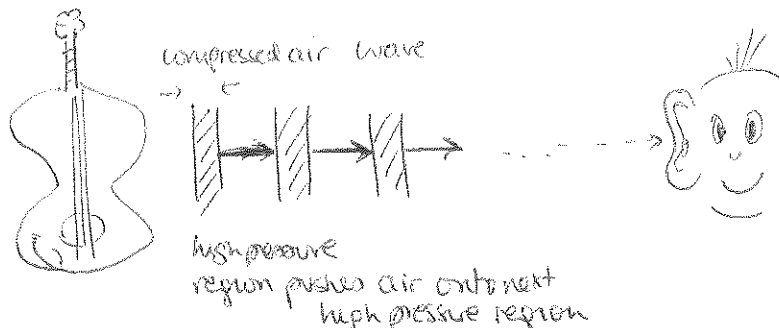 compressed air wave
high pressure
region pushes air onto next
high pressure region